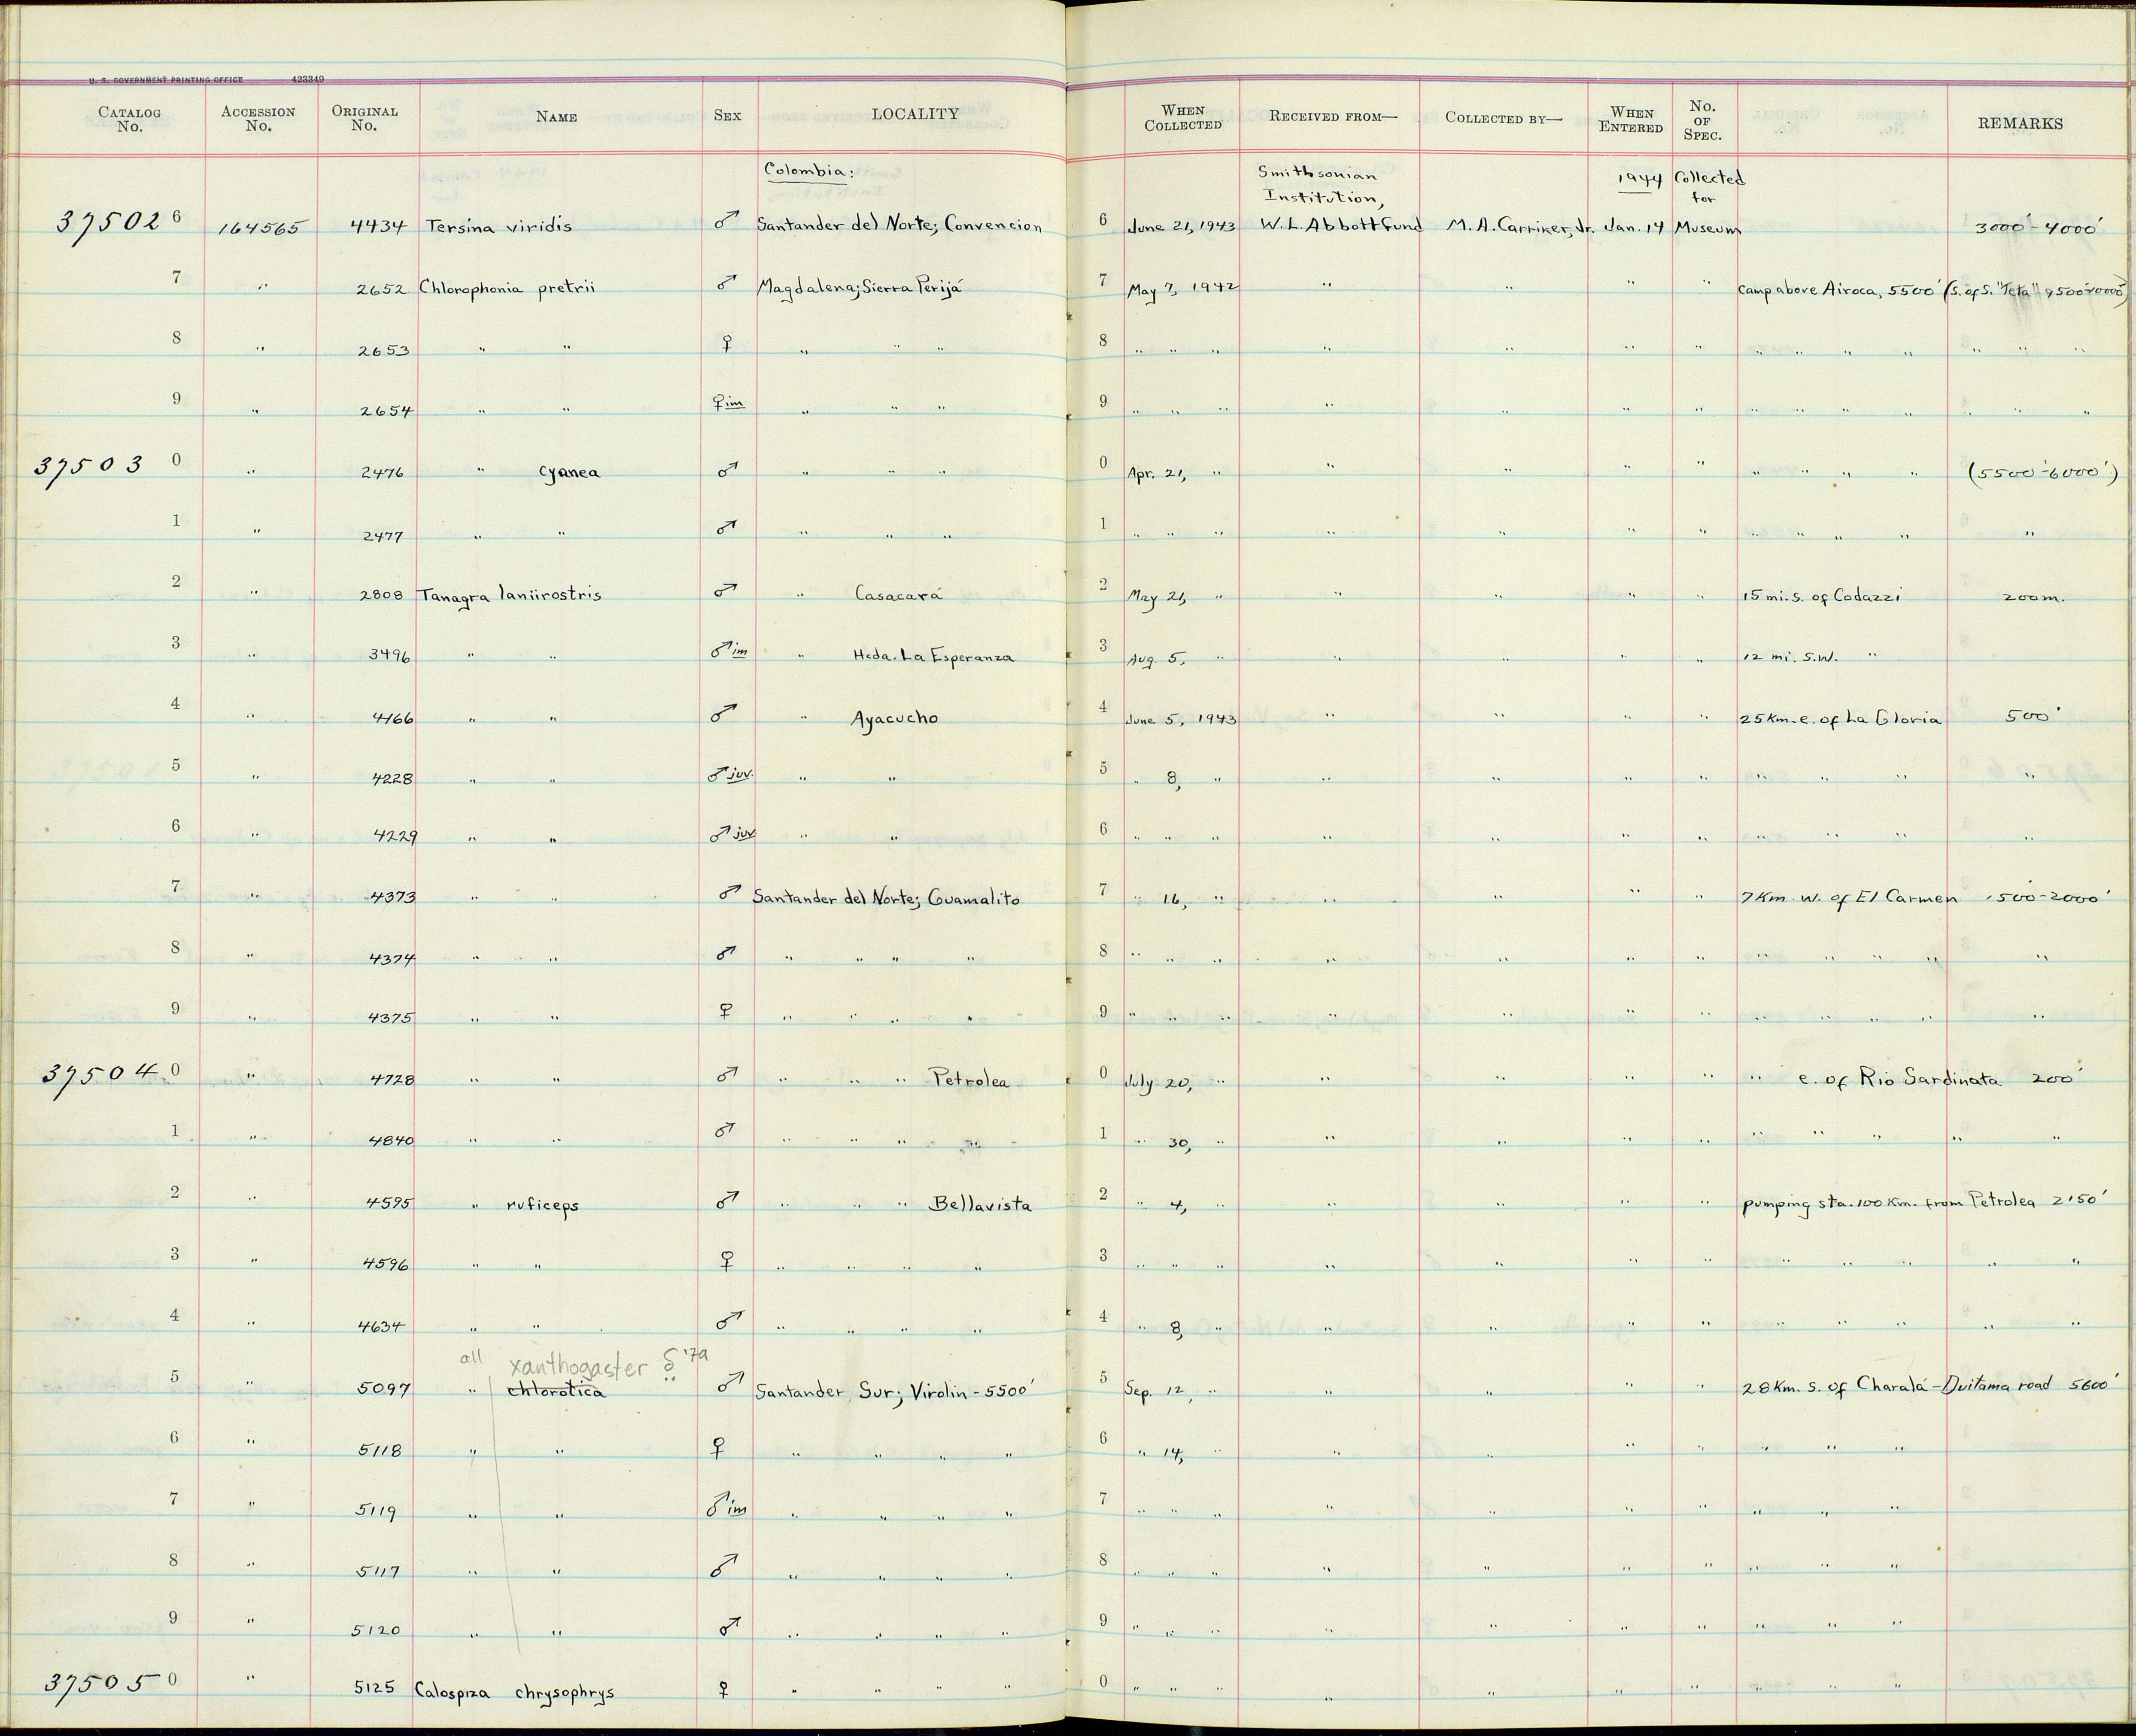 U. S. GOVERNMENT PRINTING OFFICE 423349
CATALOG No. ACCESSION No. ORIGINAL No. NAME SEX LOCALITY WHEN COLLECTED RECEIVED FROM— COLLECTED BY— WHEN ENTERED No. OF SPEC. REMARKS
Colombia: Smithsonian Institution, 1944 Collected for
37502 6 164565 4434 Tersina viridis ♂ Santander del Norte; Convencion 6 June 21, 1943 W. L. Abbott Fund M. A. Carriker, Jr. Jan. 14 Museum 3000' - 4000'
7 " 2652 Chlorophonia pretrii ♂ Magdalena; Sierra Perijá 7 May 7, 1942 " " " " Camp above Airoca, 5500' (S. of S. "Teta" 9500-10000')
8 " 2653 " " ♀ " " " 8 " " " " " " " " " " " " " "
9 " 2654 " " ♀ im " " " 9 " " " " " " " " " " " " " "
37503 0 " 2476 " Cyanea ♂ " " " 0 Apr. 21, " " " " " " " " " (5500'-6000')
1 " 2477 " " ♂ " " " 1 " " " " " " " " " " " "
2 " 2808 Tanagra laniirostris ♂ " Casacará 2 May 21, " " " " " 15 mi. s. of Codazzi 200 m.
3 " 3496 " " ♂ im " Hcda. La Esperanza 3 Aug. 5, " " " " " 12 mi. S.W. "
4 " 4166 " " ♂ " Ayacucho 4 June 5, 1943 " " " " 25 Km. e. of La Gloria 500'
5 " 4228 " " ♂ juv. " " 5 " 8, " " " " " " " " "
6 " 4229 " " ♂ juv " " 6 " " " " " " " " " " "
7 " 4373 " " ♂ Santander del Norte; Guamalito 7 " 16, " " " " " 7 Km. w. of El Carmen 1500-2000'
8 " 4374 " " ♂ " " " " 8 " " " " " " " " " " " "
9 " 4375 " " ♀ " " " " 9 " " " " " " " " " " " "
37504 0 " 4728 " " ♂ " " " Petrolea 0 July 20, " " " " " " e. of Rio Sardinata 200'
1 " 4840 " " ♂ " " " " 1 " 30, " " " " " " " " " "
2 " 4595 " ruficeps ♂ " " " Bellavista 2 " 4, " " " " " pumping sta. 100 Km. from Petrolea 2150'
3 " 4596 " " ♀ " " " " 3 " " " " " " " " " " " "
4 " 4634 " " ♂ " " " " 4 " 8, " " " " " " " " " "
all xanthogaster '79
5 " 5097 " chlorotica ♂ Santander Sur; Virolin - 5500' 5 Sep. 12, " " " " " 28 Km. S. of Charalá - Duitama road 5600'
6 " 5118 " " ♀ " " " " 6 " 14, " " " " " " " "
7 " 5119 " " ♂ im " " " " 7 " " " " " " " " " "
8 " 5117 " " ♂ " " " " 8 " " " " " " " " " "
9 " 5120 " " ♂ " " " " 9 " " " " " " " " " "
37505 0 " 5125 Calospiza chrysophrys ♀ " " " " 0 " " " " " " " " " "